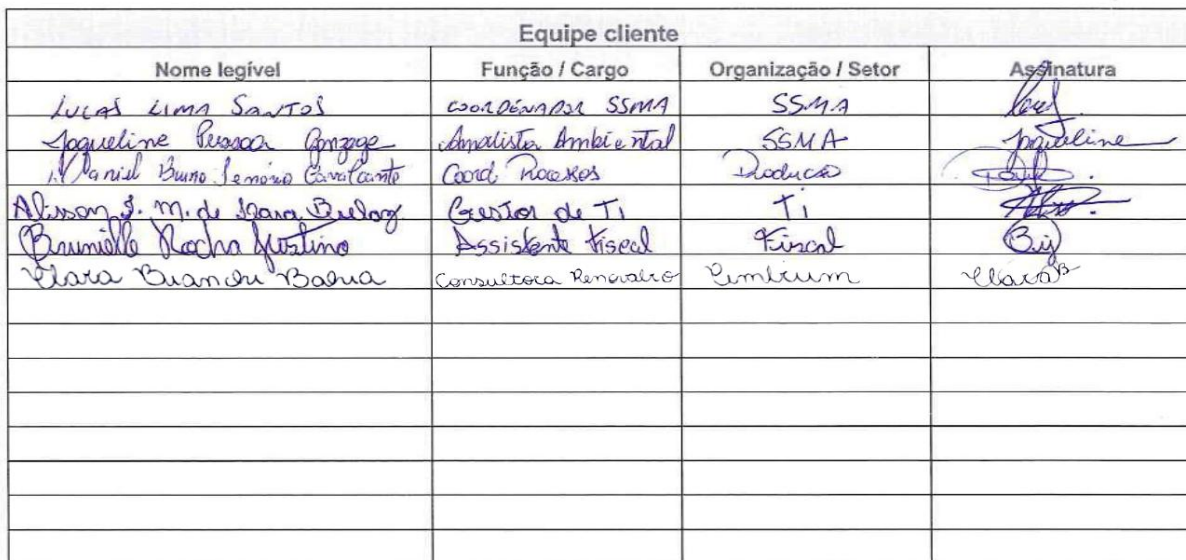 Equipe cliente
Nome legível Função / Cargo Organização / Setor Assinatura
LUCAS LIMA SANTOS COORDENADOR SSMA SSMA
Jaqueline Pessoa Gonzaga Analista Ambiental SSMA Jaqueline
Daniel Bruno Cavalcante Coord. Processos Produção
Alisson S. M. de Gestor de Ti Ti
Brunielle Rocha Justino Assistente Fiscal Fiscal
Clara Bianchi Bahia Consultora RenovaBio Clara B